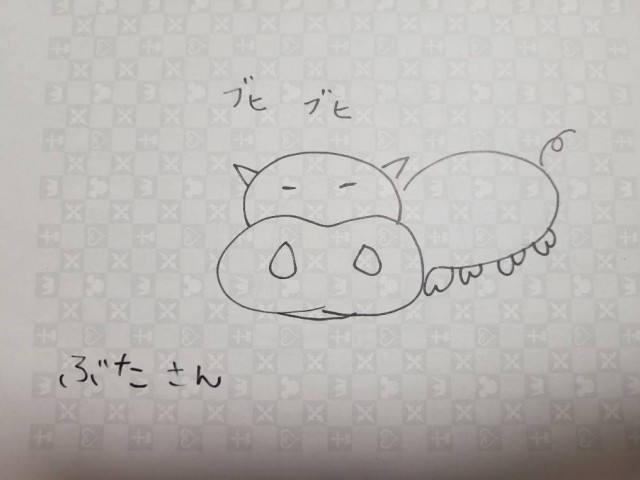 ブヒ ブヒ
ぶたさん